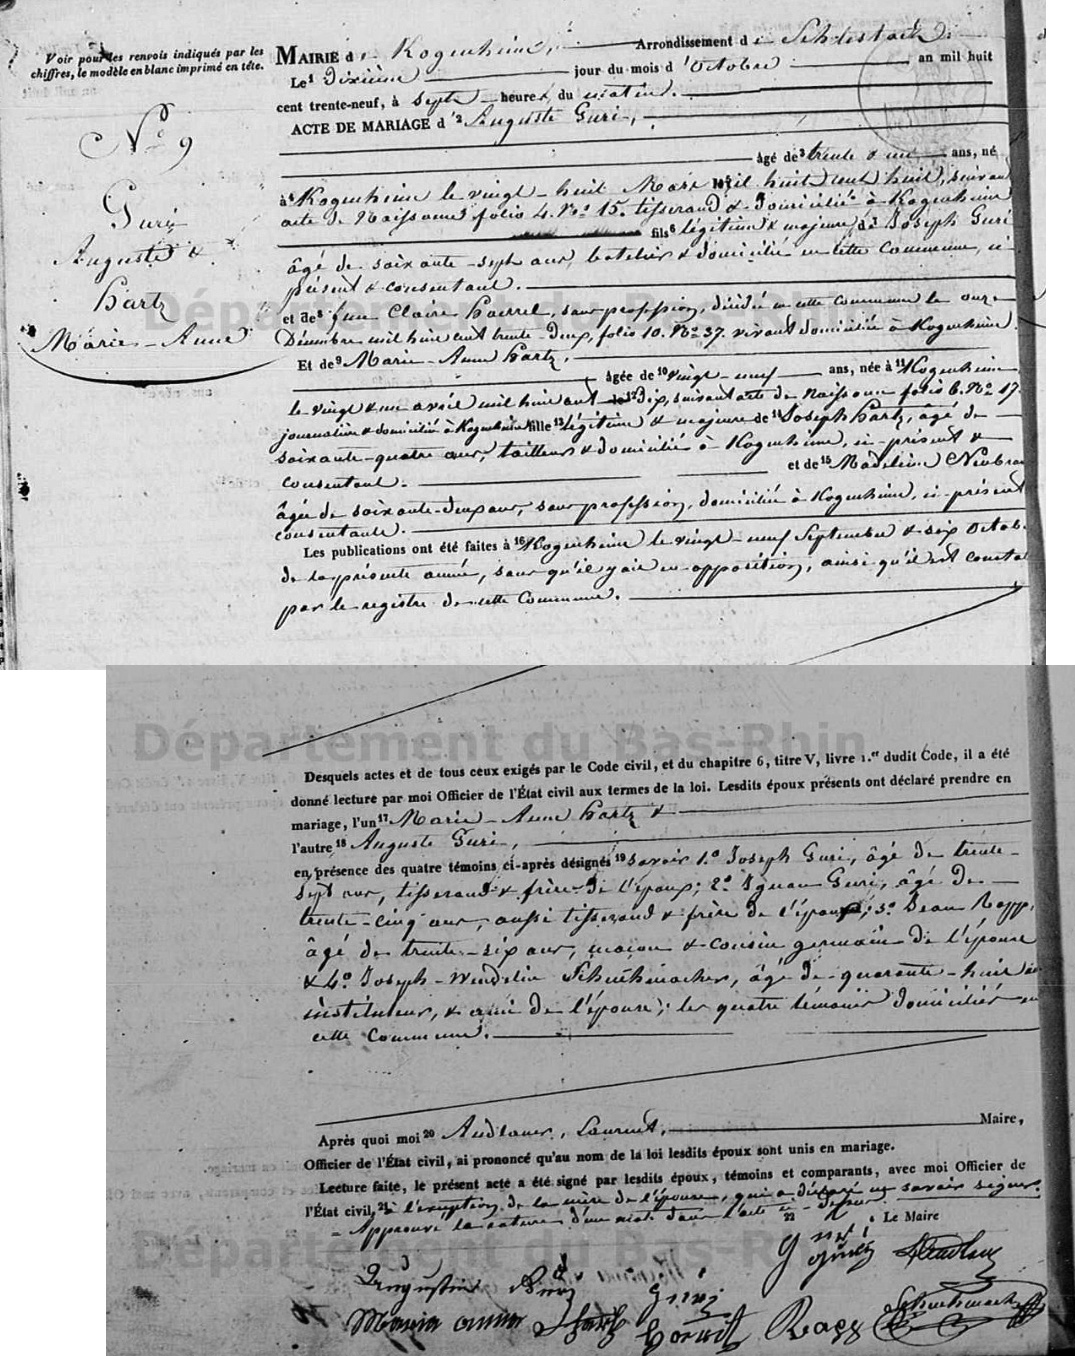 Voir pour les renvois indiqués par les
chiffres, le modèle en blanc imprimé en tête.
N.º 9
Guri
Auguste &
Hartz
Marie-Anne
MAIRIE de Kogenheim, Arrondissement de Schlestadt.
Le 1 Dixième jour du mois d'Octobre an mil huit
cent trente-neuf, à sept heures du matin.
ACTE DE MARIAGE d'2 Auguste Guri,
âgé de 3 trente & un ans, né
à 4 Kogenheim le vingt-huit Mars mil huit cent huit, suivant
acte de Naissance folio 4. Nº 15. tisserand & domicilié à Kogenheim
fils 6 légitime & majeur de Joseph Guri
âgé de soixante-sept ans, batelier & domicilié en cette Commune, ci
présent & consentant.
et de 8 feue Claire Haerrel, sans profession, décédée en cette Commune le onze
Décembre mil huit cent trente-deux, folio 10. Nº 37. vivant domiciliée à Kogenheim.
Et de 9 Marie-Anne Hartz,
âgée de 10 vingt-neuf ans, née à 11 Kogenheim
le vingt & un avril mil huit cent dix, suivant acte de Naissance folio 6. Nº 17.
journalière & domiciliée à Kogenheim fille 13 légitime & majeure de 14 Joseph Hartz, âgé de
soixante-quatre ans, tailleur & domicilié à Kogenheim, ci-présent &
consentant. et de 15 Madeleine
âgée de soixante-deux ans, sans profession, domiciliée à Kogenheim, ci-présente
consentante.
Les publications ont été faites à 16 Kogenheim le vingt-neuf Septembre & six Octob.
de la présente année, sans qu'il y ait eu opposition, ainsi qu'il est constaté
par le registre de cette Commune.
Département du Bas-Rhin
Desquels actes et de tous ceux exigés par le Code civil, et du chapitre 6, titre V, livre 1.er dudit Code, il a été
donné lecture par moi Officier de l'État civil aux termes de la loi. Lesdits époux présents ont déclaré prendre en
mariage, l'un 17 Marie-Anne Hartz &
l'autre 18 Auguste Guri,
en présence des quatre témoins ci-après désignés 19 savoir 1.º Joseph Guri, âgé de trente-
sept ans, tisserand & frère de l'époux; 2.º Ignace Guri, âgé de
trente-cinq ans, aussi tisserand & frère de l'époux; 3.º Jean Rapp,
âgé de trente-six ans, maçon & cousin germain de l'épouse
& 4.º Joseph-Wendelin Schuhmacher, âgé de quarante-huit ans
instituteur, & ami de l'épouse; les quatre témoins domiciliés en
cette Commune.
Après quoi moi 20 Andlauer, Laurent, Maire,
Officier de l'État civil, ai prononcé qu'au nom de la loi lesdits époux sont unis en mariage.
Lecture faite, le présent acte a été signé par lesdits époux, témoins et comparants, avec moi Officier de
l'État civil, 21 à l'exception de la mère de l'épouse, qui a déclaré ne savoir signer.
- Approuvé la rature d'un mot dans l'acte ci-dessus. 22 Le Maire
Département du Bas-Rhin
Andlauer
Augustin Guri
Guri
Schuhmacher
Maria anna Hartz Rapp